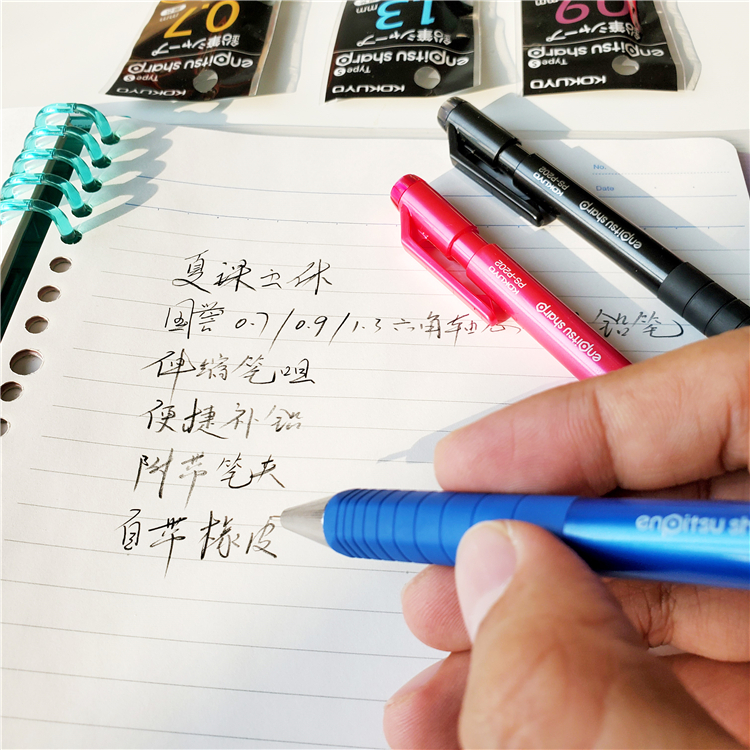 0.7
mm
鉛筆シャープ
enpitsu sharp
Type S
KOKUYO
1.3
鉛筆シャープ
enpitsu sharp
Type S
KOKUYO
0.9
mm
鉛筆シャープ
enpitsu sharp
Type S
KOKUYO
No.
Date
KOKUYO PS-P202
enpitsu sharp
KOKUYO PS-P202
enpitsu sharp
夏课文休
国誉 0.7/0.9/1.3 六角轴 铅笔
伸缩笔咀
便捷补铅
附带笔夹
自带橡皮
enpitsu sh